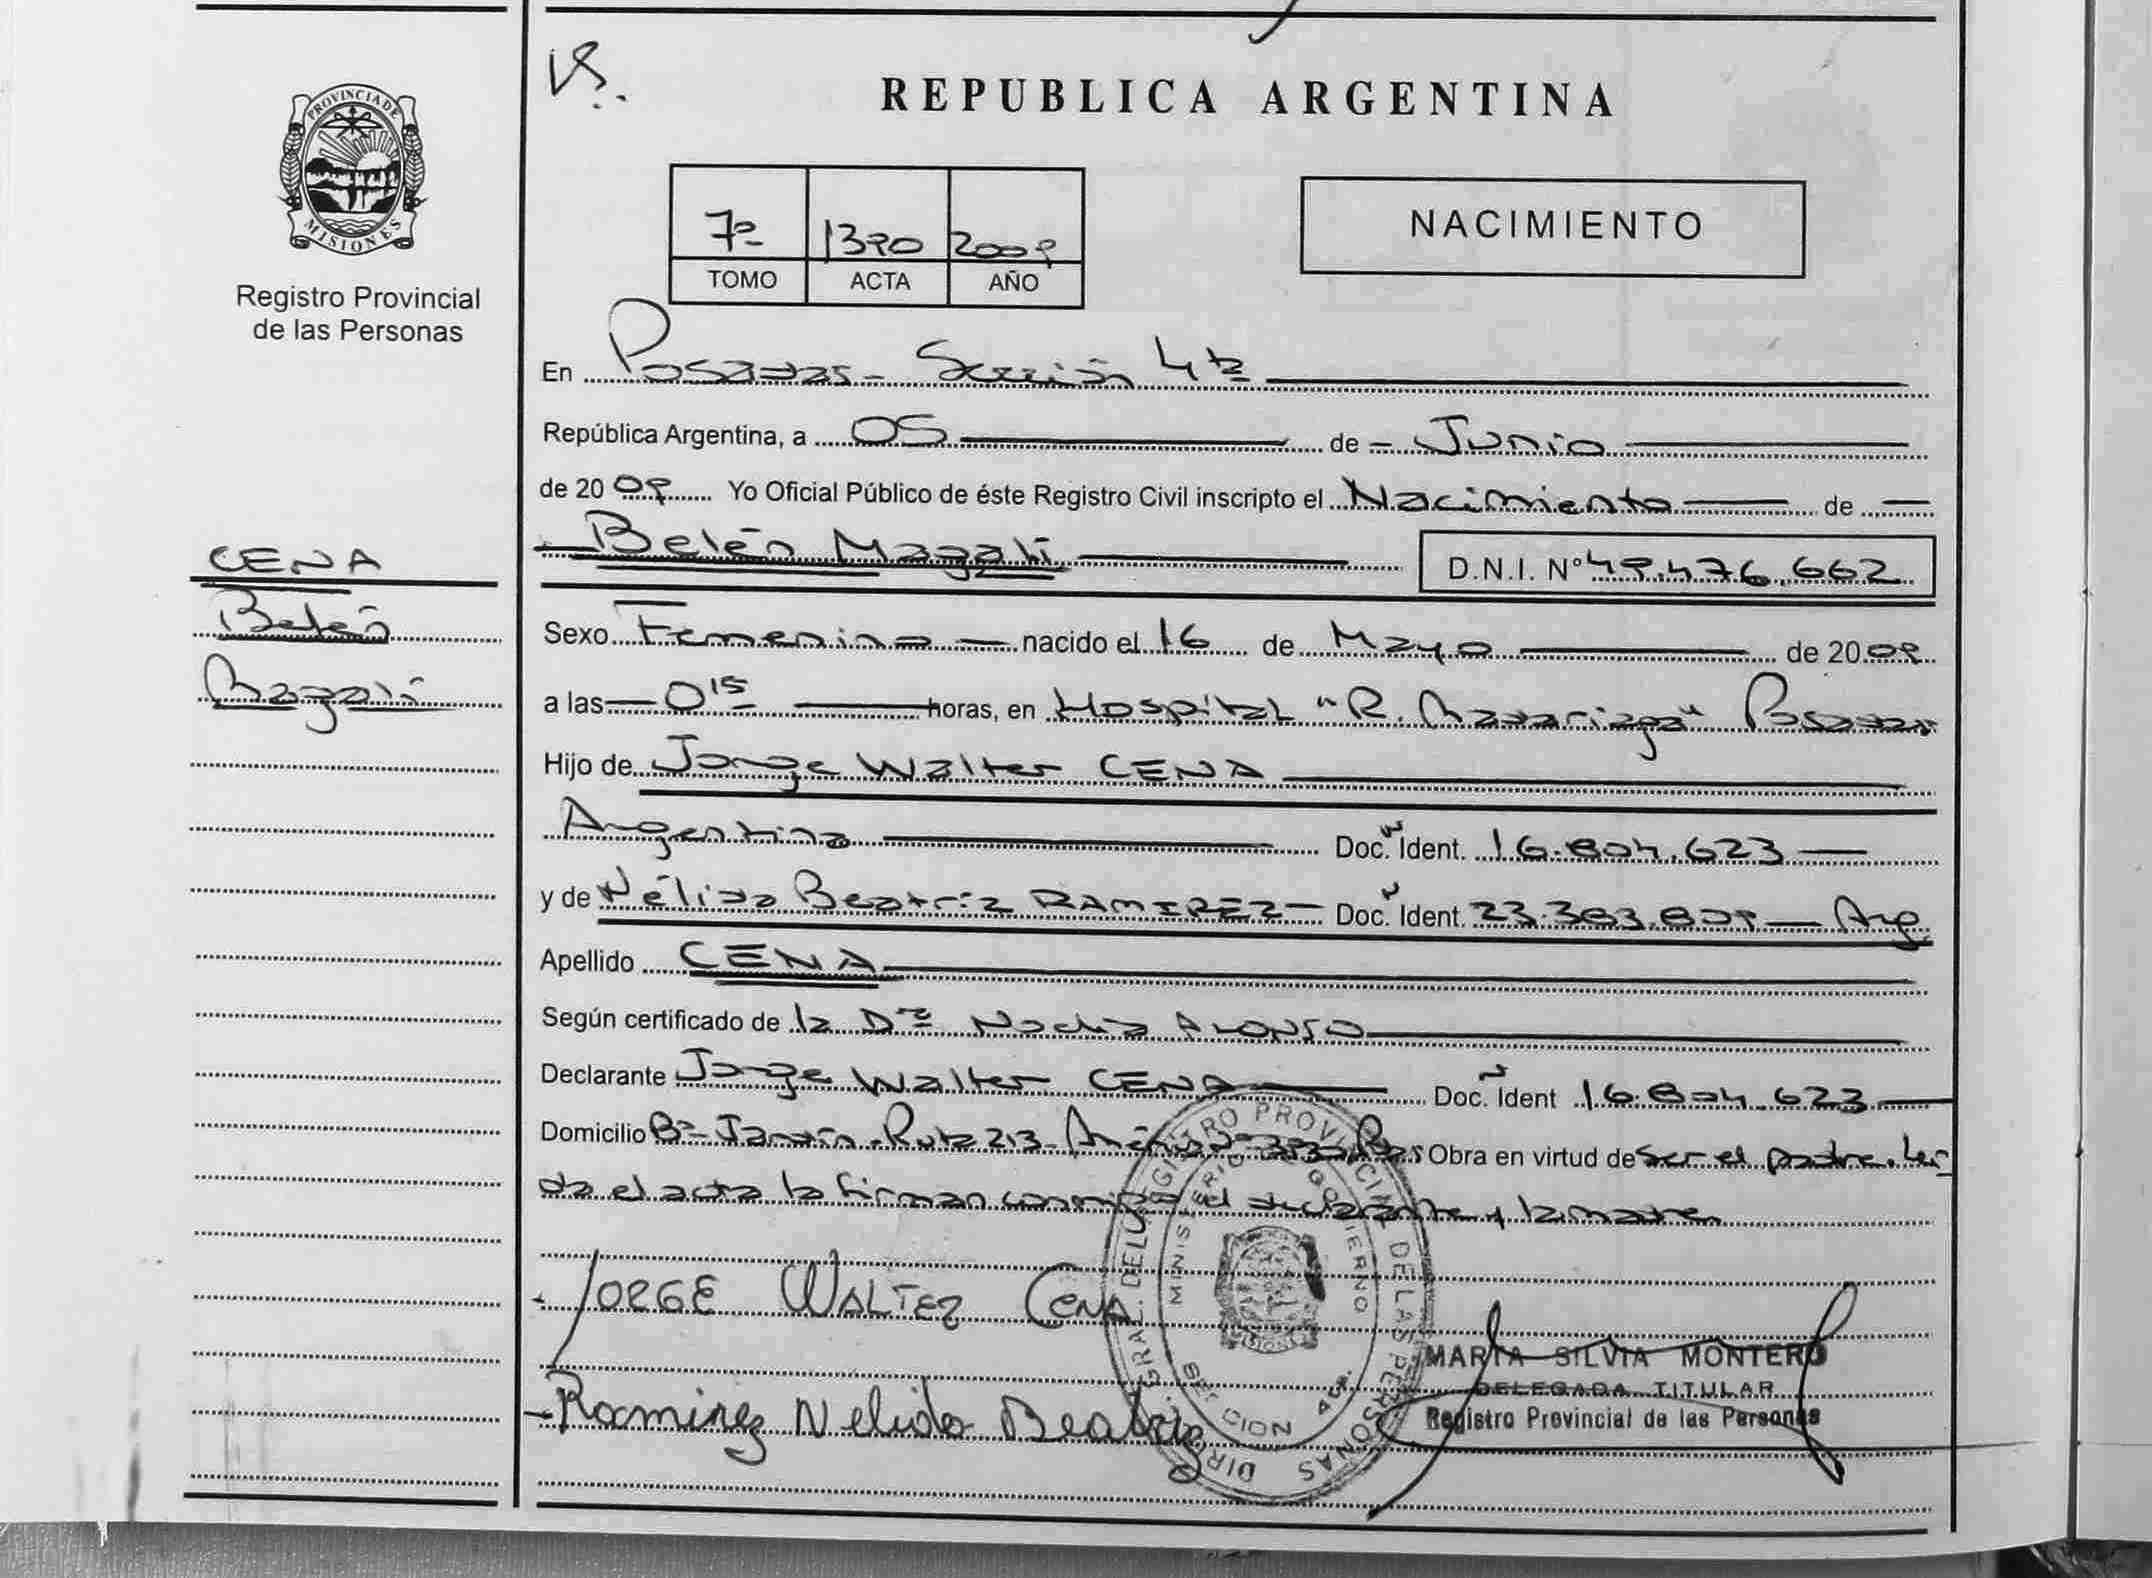 REPUBLICA ARGENTINA
PROVINCIA DE
MISIONES
Registro Provincial
de las Personas
7º 1390 2009
TOMO ACTA AÑO
NACIMIENTO
En Posadas - Sección 4ta
República Argentina, a 05 de Junio
de 2009 Yo Oficial Público de éste Registro Civil inscripto el Nacimiento de
Belén Magalí D.N.I. Nº 49.476.662
CENA
Belén
Magalí
Sexo Femenino nacido el 16 de Mayo de 2009
a las 0 15 horas, en Hospital "R. Madariaga" Posadas
Hijo de Jorge Walter CENA
Argentino Doc. Ident. 16.804.623
y de Nélida Beatríz RAMIREZ Doc. Ident. Arg.
Apellido CENA
Según certificado de la Dra ALONSO
Declarante Jorge Walter CENA Doc. Ident 16.804.623
Domicilio Bº Jardín - Ruta 213 - Obra en virtud de ser el padre. Leí
da el acta la firman conmigo el declarante y la madre.
JORGE WALTER CENA
Ramirez Nelida Beatriz
DIR. GRAL. DEL REGISTRO PROVINCIAL DE LAS PERSONAS
MINISTERIO DE GOBIERNO
SECCION 4ta.
MARIA SILVIA MONTERO
DELEGADA TITULAR
Registro Provincial de las Personas